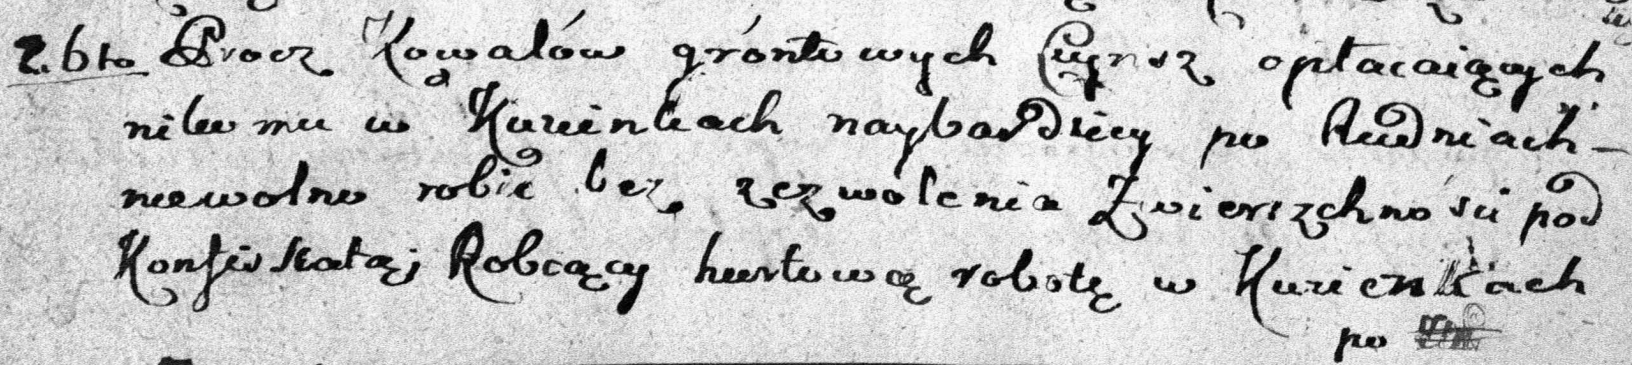 2.do Procz Kowalów gróntowych Czynsz opłacaiących
nikomu w Kuzienkach naybardziey po Rudniach
niewolno robic bez zezwolenia Zwierzchności pod
Konfiskatą j Robiący hurtową robotę w Kuzienkach
po